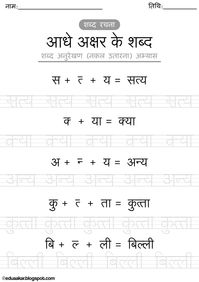 नाम: तिथि:
शब्द रचना
आधे अक्षर के शब्द
शब्द अनुरेखण (नकल उतारना) अभ्यास
स + त् + य = सत्य
सत्य सत्य सत्य सत्य
क् + या = क्या
क्या क्या क्या क्या
अ + न् + य = अन्य
अन्य अन्य अन्य अन्य
कु + त् + ता = कुत्ता
कुत्ता कुत्ता कुत्ता कुत्ता
बि + ल् + ली = बिल्ली
बिल्ली बिल्ली बिल्ली बिल्ली
©edusakar.blogspot.com